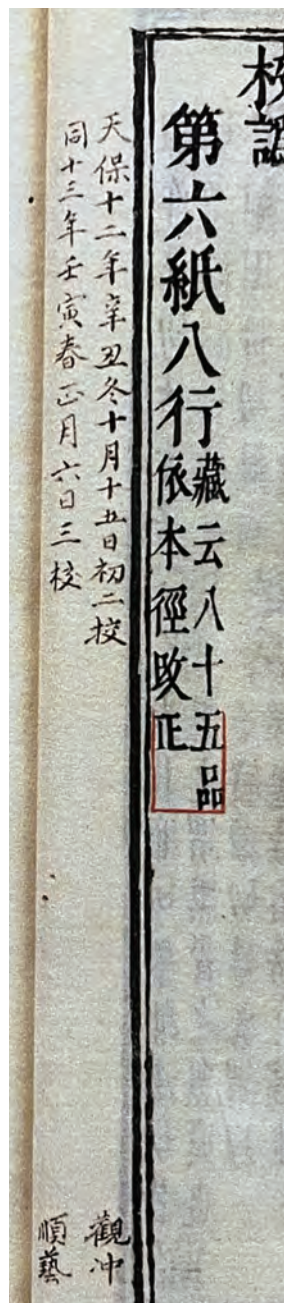 校譌
第六紙八行
藏云八十五品
依本徑改正
天保十二年辛丑冬十月十五日初二挍
觀冲
同十三年壬寅春正月六日三校
順藝